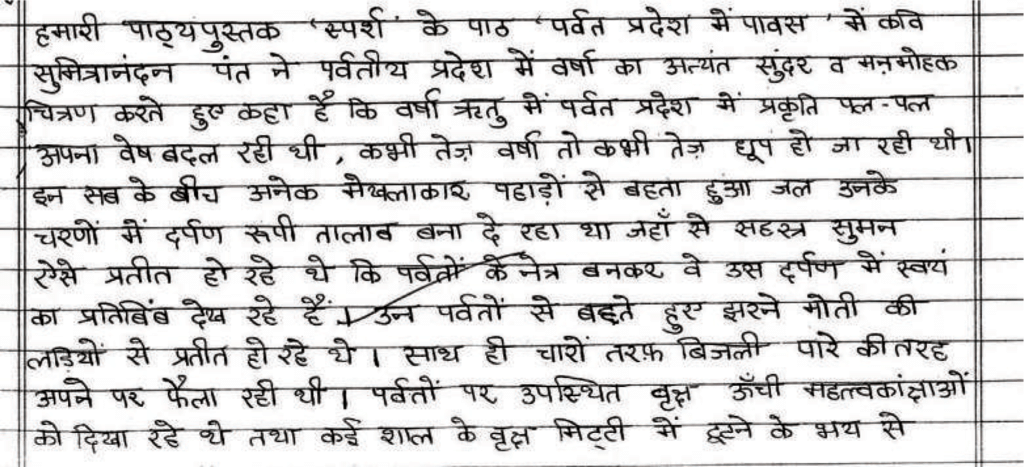 हमारी पाठ्यपुस्तक 'स्पर्श' के पाठ 'पर्वत प्रदेश में पावस' में कवि
सुमित्रानंदन पंत ने पर्वतीय प्रदेश में वर्षा का अत्यंत सुंदर व मनमोहक
चित्रण करते हुए कहा है कि वर्षा ऋतु में पर्वत प्रदेश में प्रकृति पल-पल
अपना वेष बदल रही थी, कभी तेज़ वर्षा तो कभी तेज़ धूप हो जा रही थी।
इन सब के बीच अनेक मेखलाकार पहाड़ों से बहता हुआ जल उनके
चरणों में दर्पण रूपी तालाब बना दे रहा था जहाँ से सहस्त्र सुमन
ऐसे प्रतीत हो रहे थे कि पर्वतों के नेत्र बनकर वे उस दर्पण में स्वयं
का प्रतिबिंब देख रहे हैं। उन पर्वतों से बहते हुए झरने मोती की
लड़ियों से प्रतीत हो रहे थे। साथ ही चारों तरफ़ बिजली पारे की तरह
अपने पर फैला रही थी। पर्वतों पर उपस्थित वृक्ष ऊँची महत्वकांक्षाओं
को दिखा रहे थे तथा कई शाल के वृक्ष मिट्टी में टूटने के भय से